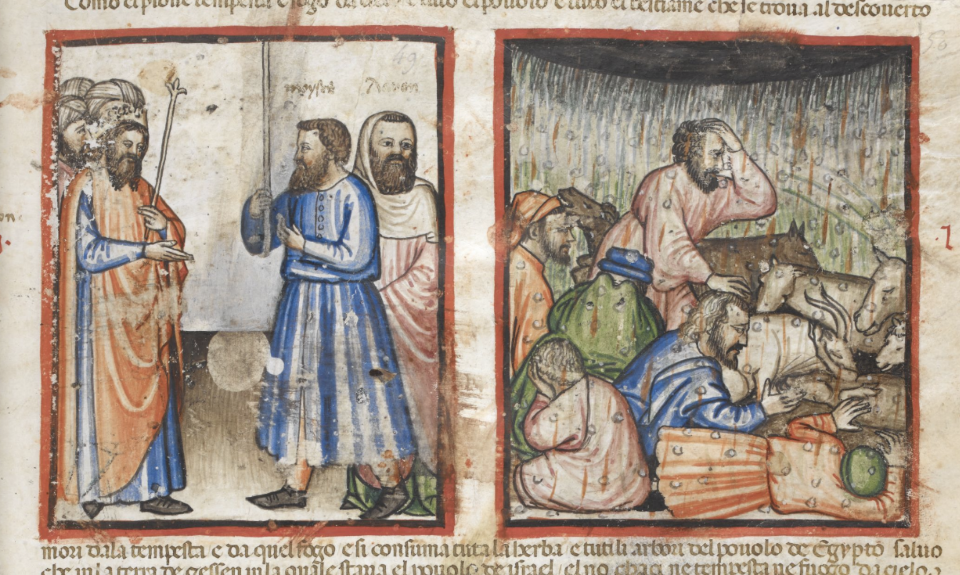 Como el piove tempesta e fogo da cielo e tuto el povolo e tuto el bestiame che se trova al descoverto
moyses
Aaron
mori dala tempesta e da quel fogo e si consuma tuta la herba e tuti li arbori del povolo de Egypto salvo
che in la terra de gessen in la quale stava el povolo de israel el no